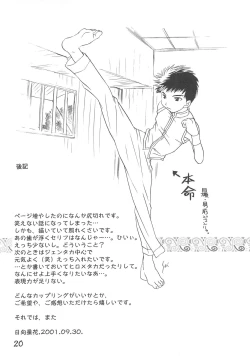 後記
本命
ページ増やしたのになんか尻切れです。
笑えない話になってしまった…
しかも、描いていて照れくさいです。
あの歯が浮くセリフはなんじゃー…。ひぃぃ。
えっち少ないし。どういうこと？
次のときはジェンタカ中心で
元気よく（笑）えっち入れたいです。
…とか書いておいてヒロメタカだったりして。
なんにせよ上手くなりたいなあ。
表現力が足りない。
どんなカップリングがいいかとか、
ご希望や、ご感想いただけたら嬉しいです。
それでは、また
日向葵花.2001.09.30.
20